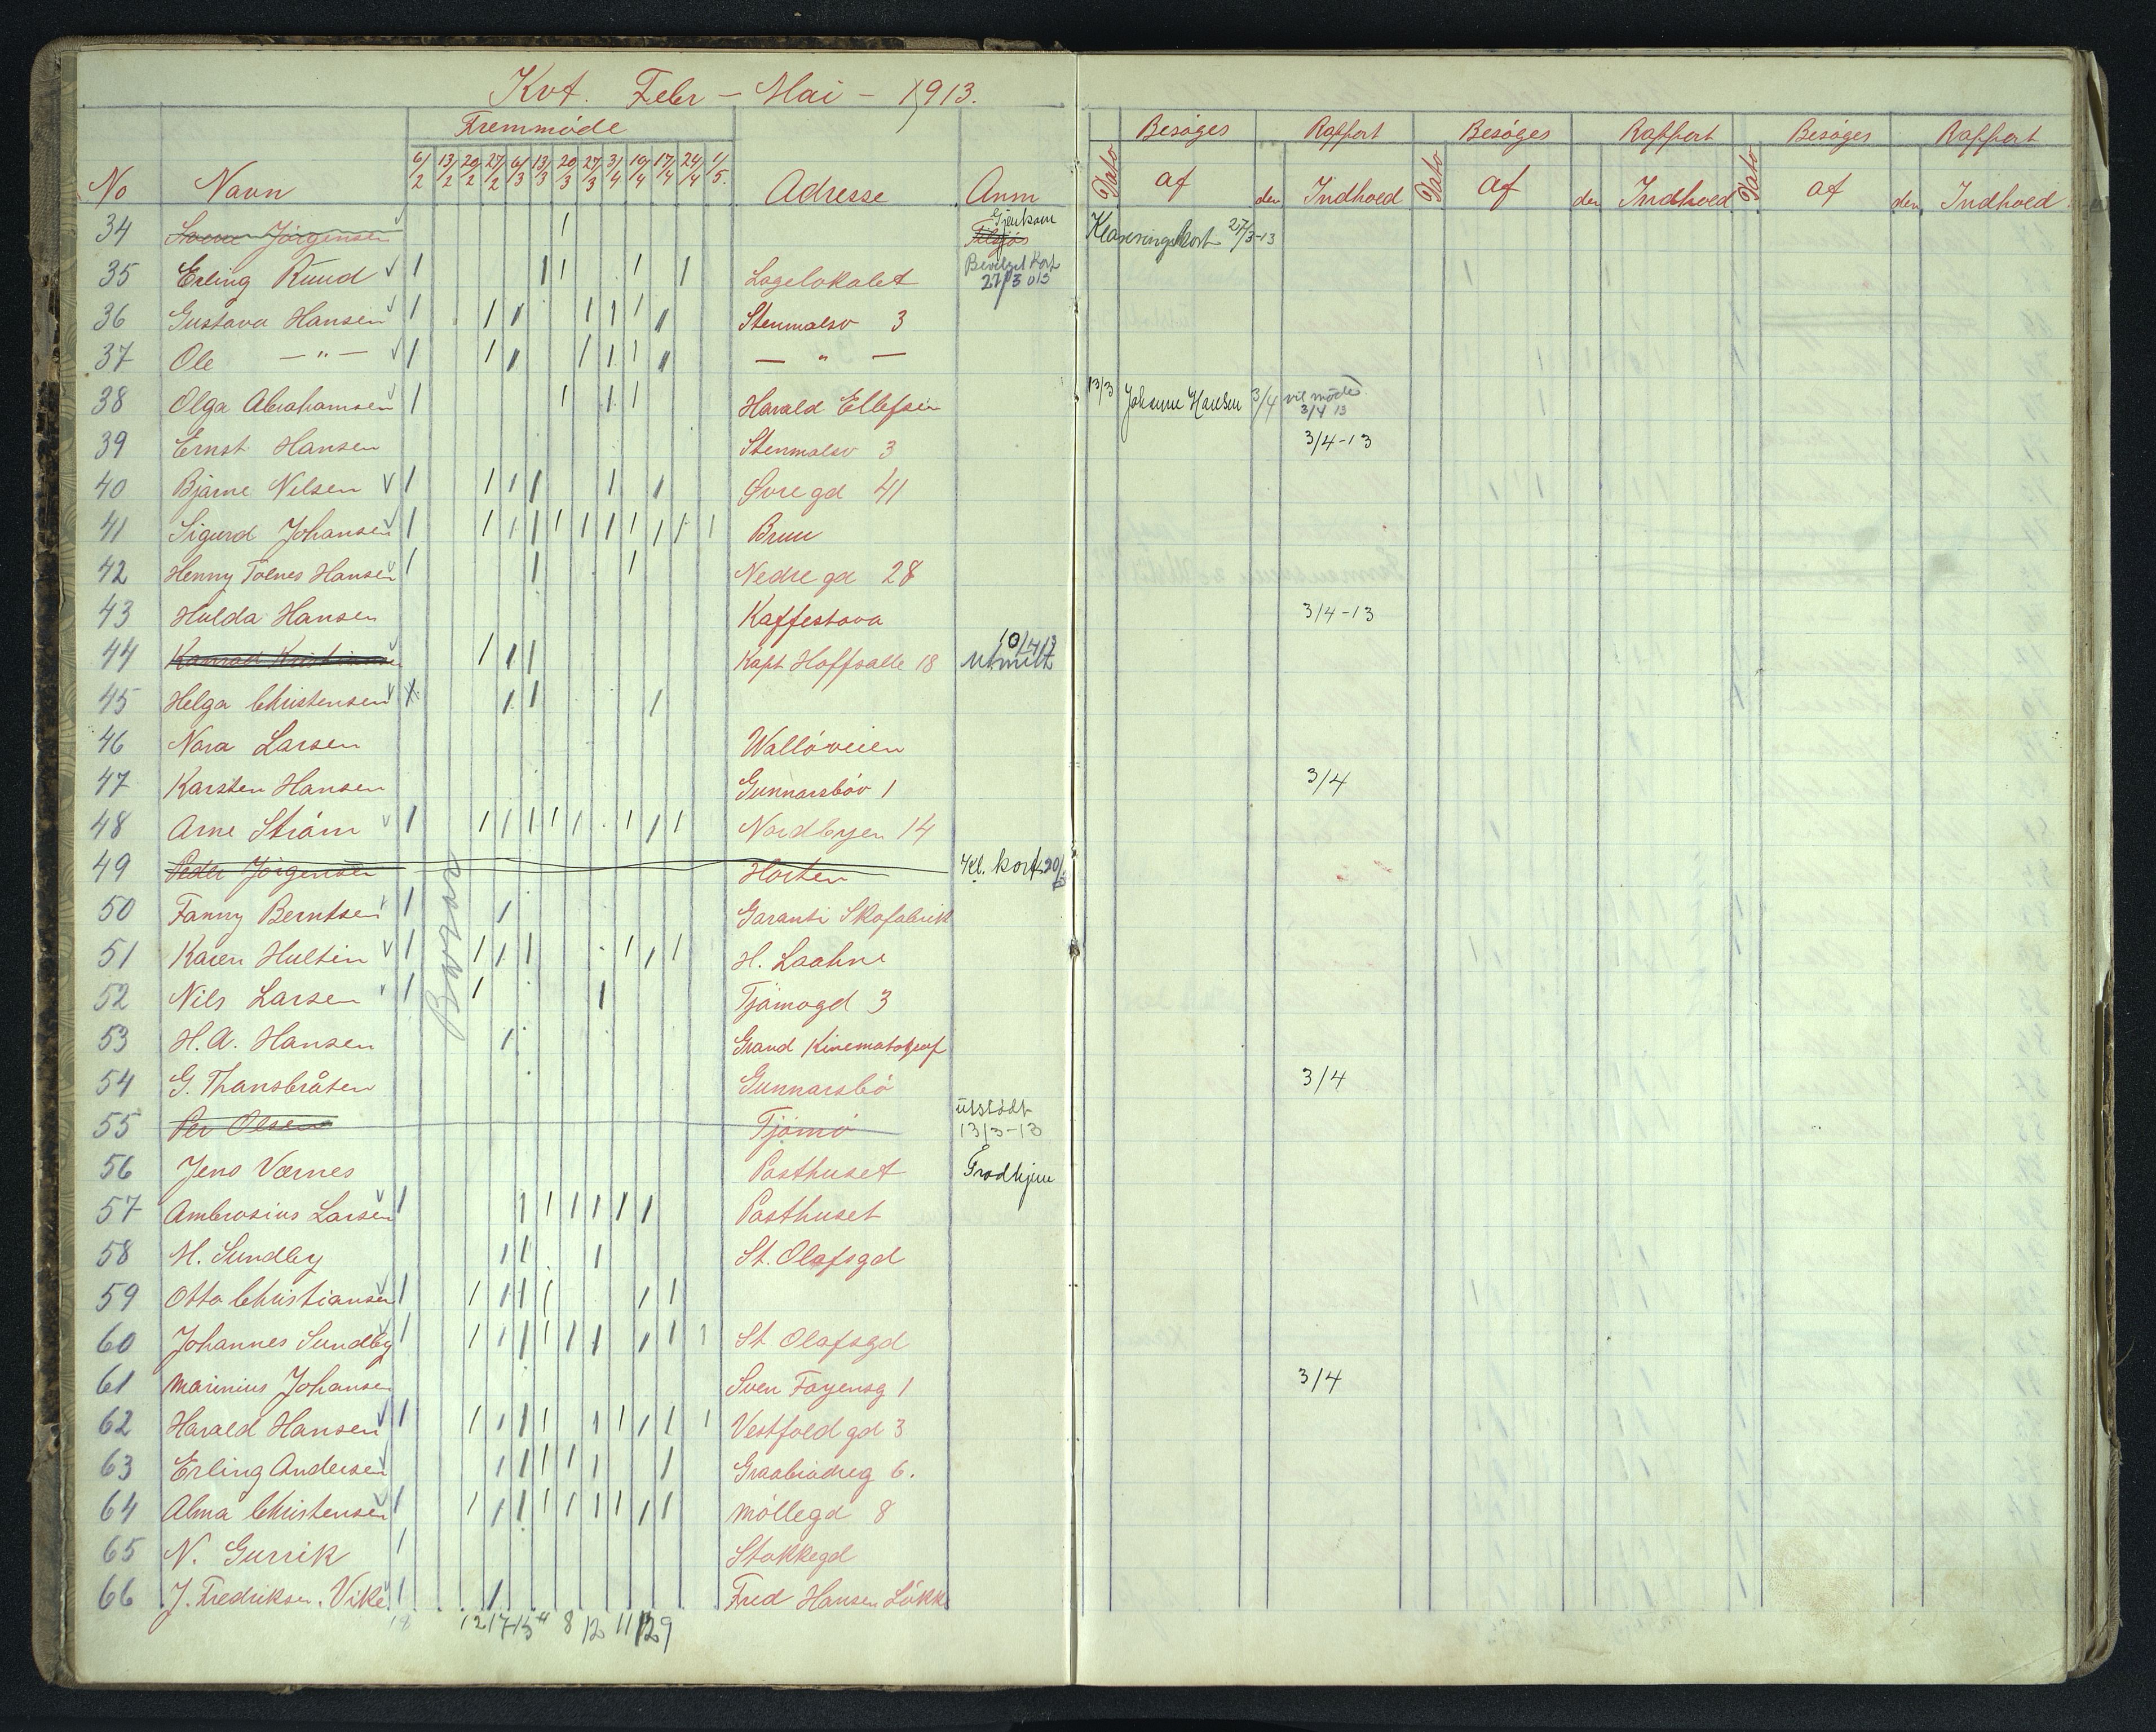 Kvt. Febr - Mai - 1913.
Fremmöde
No Navn 6/2 13/2 20/2 27/2 6/3 13/3 20/3 27/3 3/4 10/4 17/4 24/4 1/5. Adresse Anm
34 Jörgensen
35 Erling Ruud Logelokalet Bevilget Kort 27/3 013
36 Gustava Hansen Stenmalsv 3
37 Ole — " — — " —
38 Olga Abrahamsen Harald Ellefsen
39 Ernst Hansen Stenmalsv 3
40 Bjarne Nilsen Övregd 41
41 Sigurd Johansen Bruu
42 Henny Tönes Hansen Nedregd 28
43 Hulda Hansen Kaffestova
44 Konrad Kristiansen Kapt Hoffsalle 18 Utmeldt 10/4 13
45 Helga Christensen
46 Nora Larsen Wallöveien
47 Karsten Hansen Gunnarsböv 1
48 Arne Ström Nordbyen 14
49 Peder Jörgensen Horten Kl. kort 20/3
50 Fanny Berntsen Garanti Skofabrik
51 Karen Hultin H. Laahne
52 Nils Larsen Tjömogd 3
53 H. A. Hansen Grand Kinematograf
54 G. Thansbråten Gunnarsbö
55 Per Olsen Tjömö utstödt 13/3-13
56 Jens Værnes Posthuset Trodhjem
57 Ambrosius Larsen Posthuset
58 M. Sundby St. Olafsgd
59 Otto Christiansen
60 Johannes Sundby St. Olafsgd
61 Marinius Johansen Sven Foyensg 1
62 Harald Hansen Vestfoldgd 3
63 Erling Andersen Graabrödreg 6.
64 Alma Christensen Möllegd 8
65 N. Gurrik Stokkegd
66 J. Fredriksen. Vike Fred Hansen Lökk
18 12 17 15 4 8 12 11 12 9
Besöges Rapport Besöges Rapport Besöges Rapport
Dato af den Indhold Dato af den Indhold Dato af den Indhold
Klareringskort 27/3-13
13/3 Johanne Hansen 3/4 vil möde 3/4 13
3/4-13
3/4-13
3/4
3/4
3/4